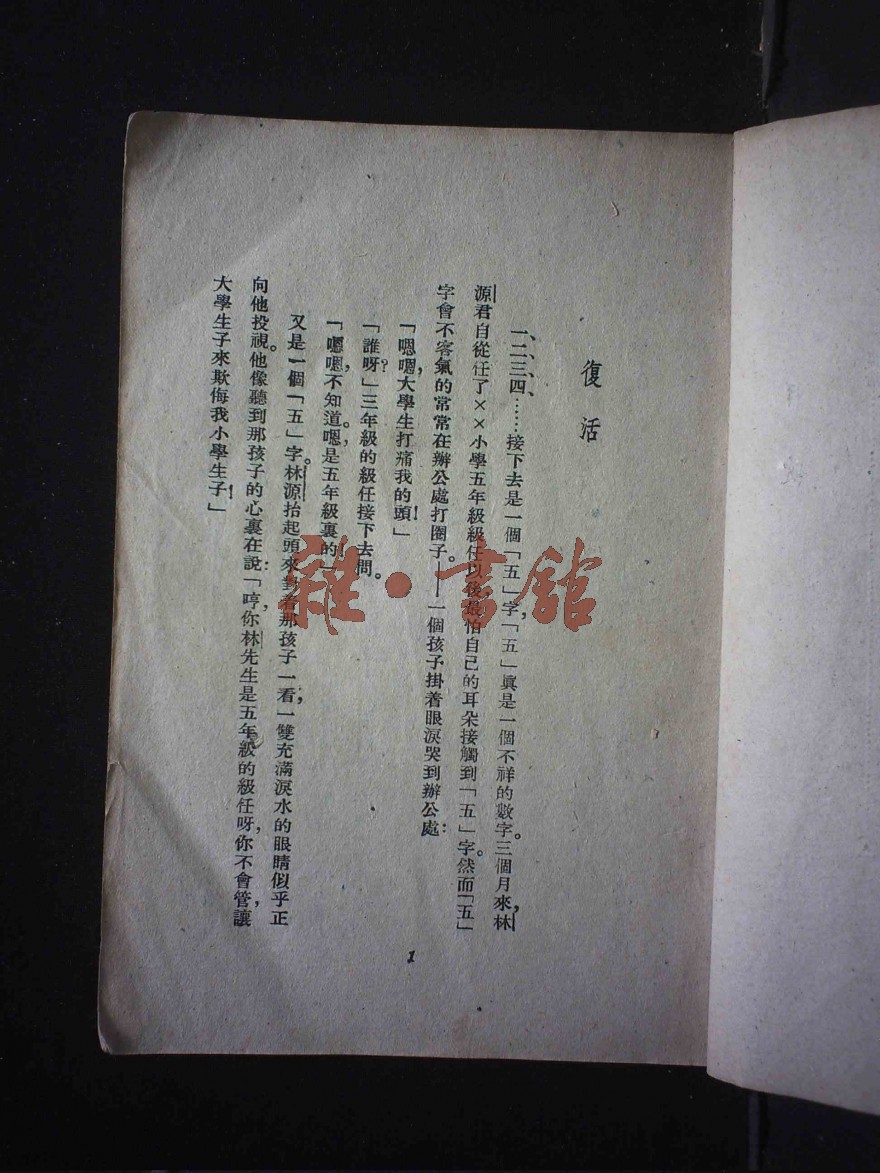 復活
一、二、三、四、……接下去是一個「五」字，「五」眞是一個不祥的數字。三個月來，林
源君自從任了××小學五年級級任以後，最怕自己的耳朵接觸到「五」字。然而「五」
字會不客氣的常常在辦公處打圈子。——一個孩子掛着眼淚哭到辦公處：
「嗯嗯，大學生打痛我的頭！」
「誰呀？」三年級的級任接下去問。
「嗯嗯，不知道。嗯，是五年級裏的！」
又是一個「五」字。林源抬起頭來對着那孩子一看，一雙充滿淚水的眼睛似乎正
向他投視。他像聽到那孩子的心裏在說：「哼，你林先生是五年級的級任呀，你不會管，讓
大學生子來欺侮我小學生子！」
1
雜·書館